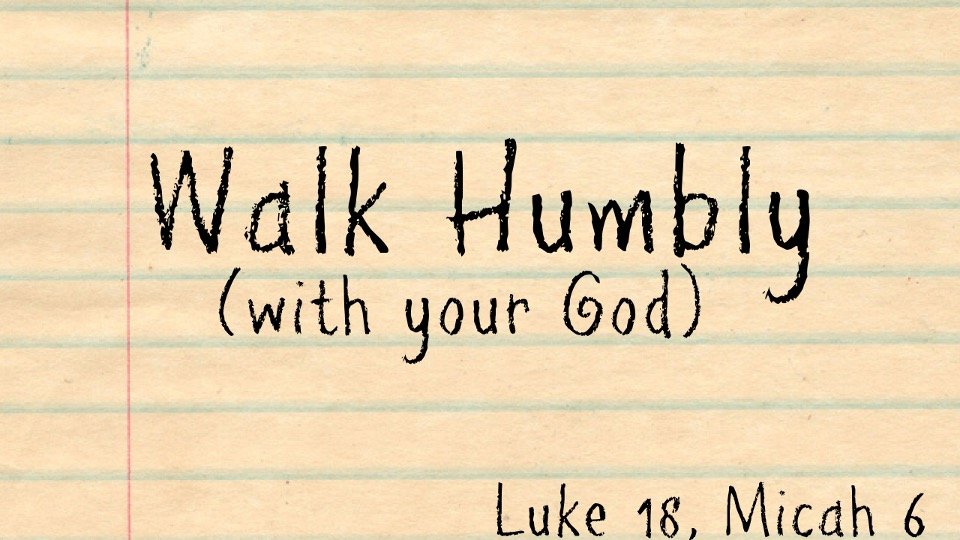 Walk Humbly
(with your God)
Luke 18, Micah 6